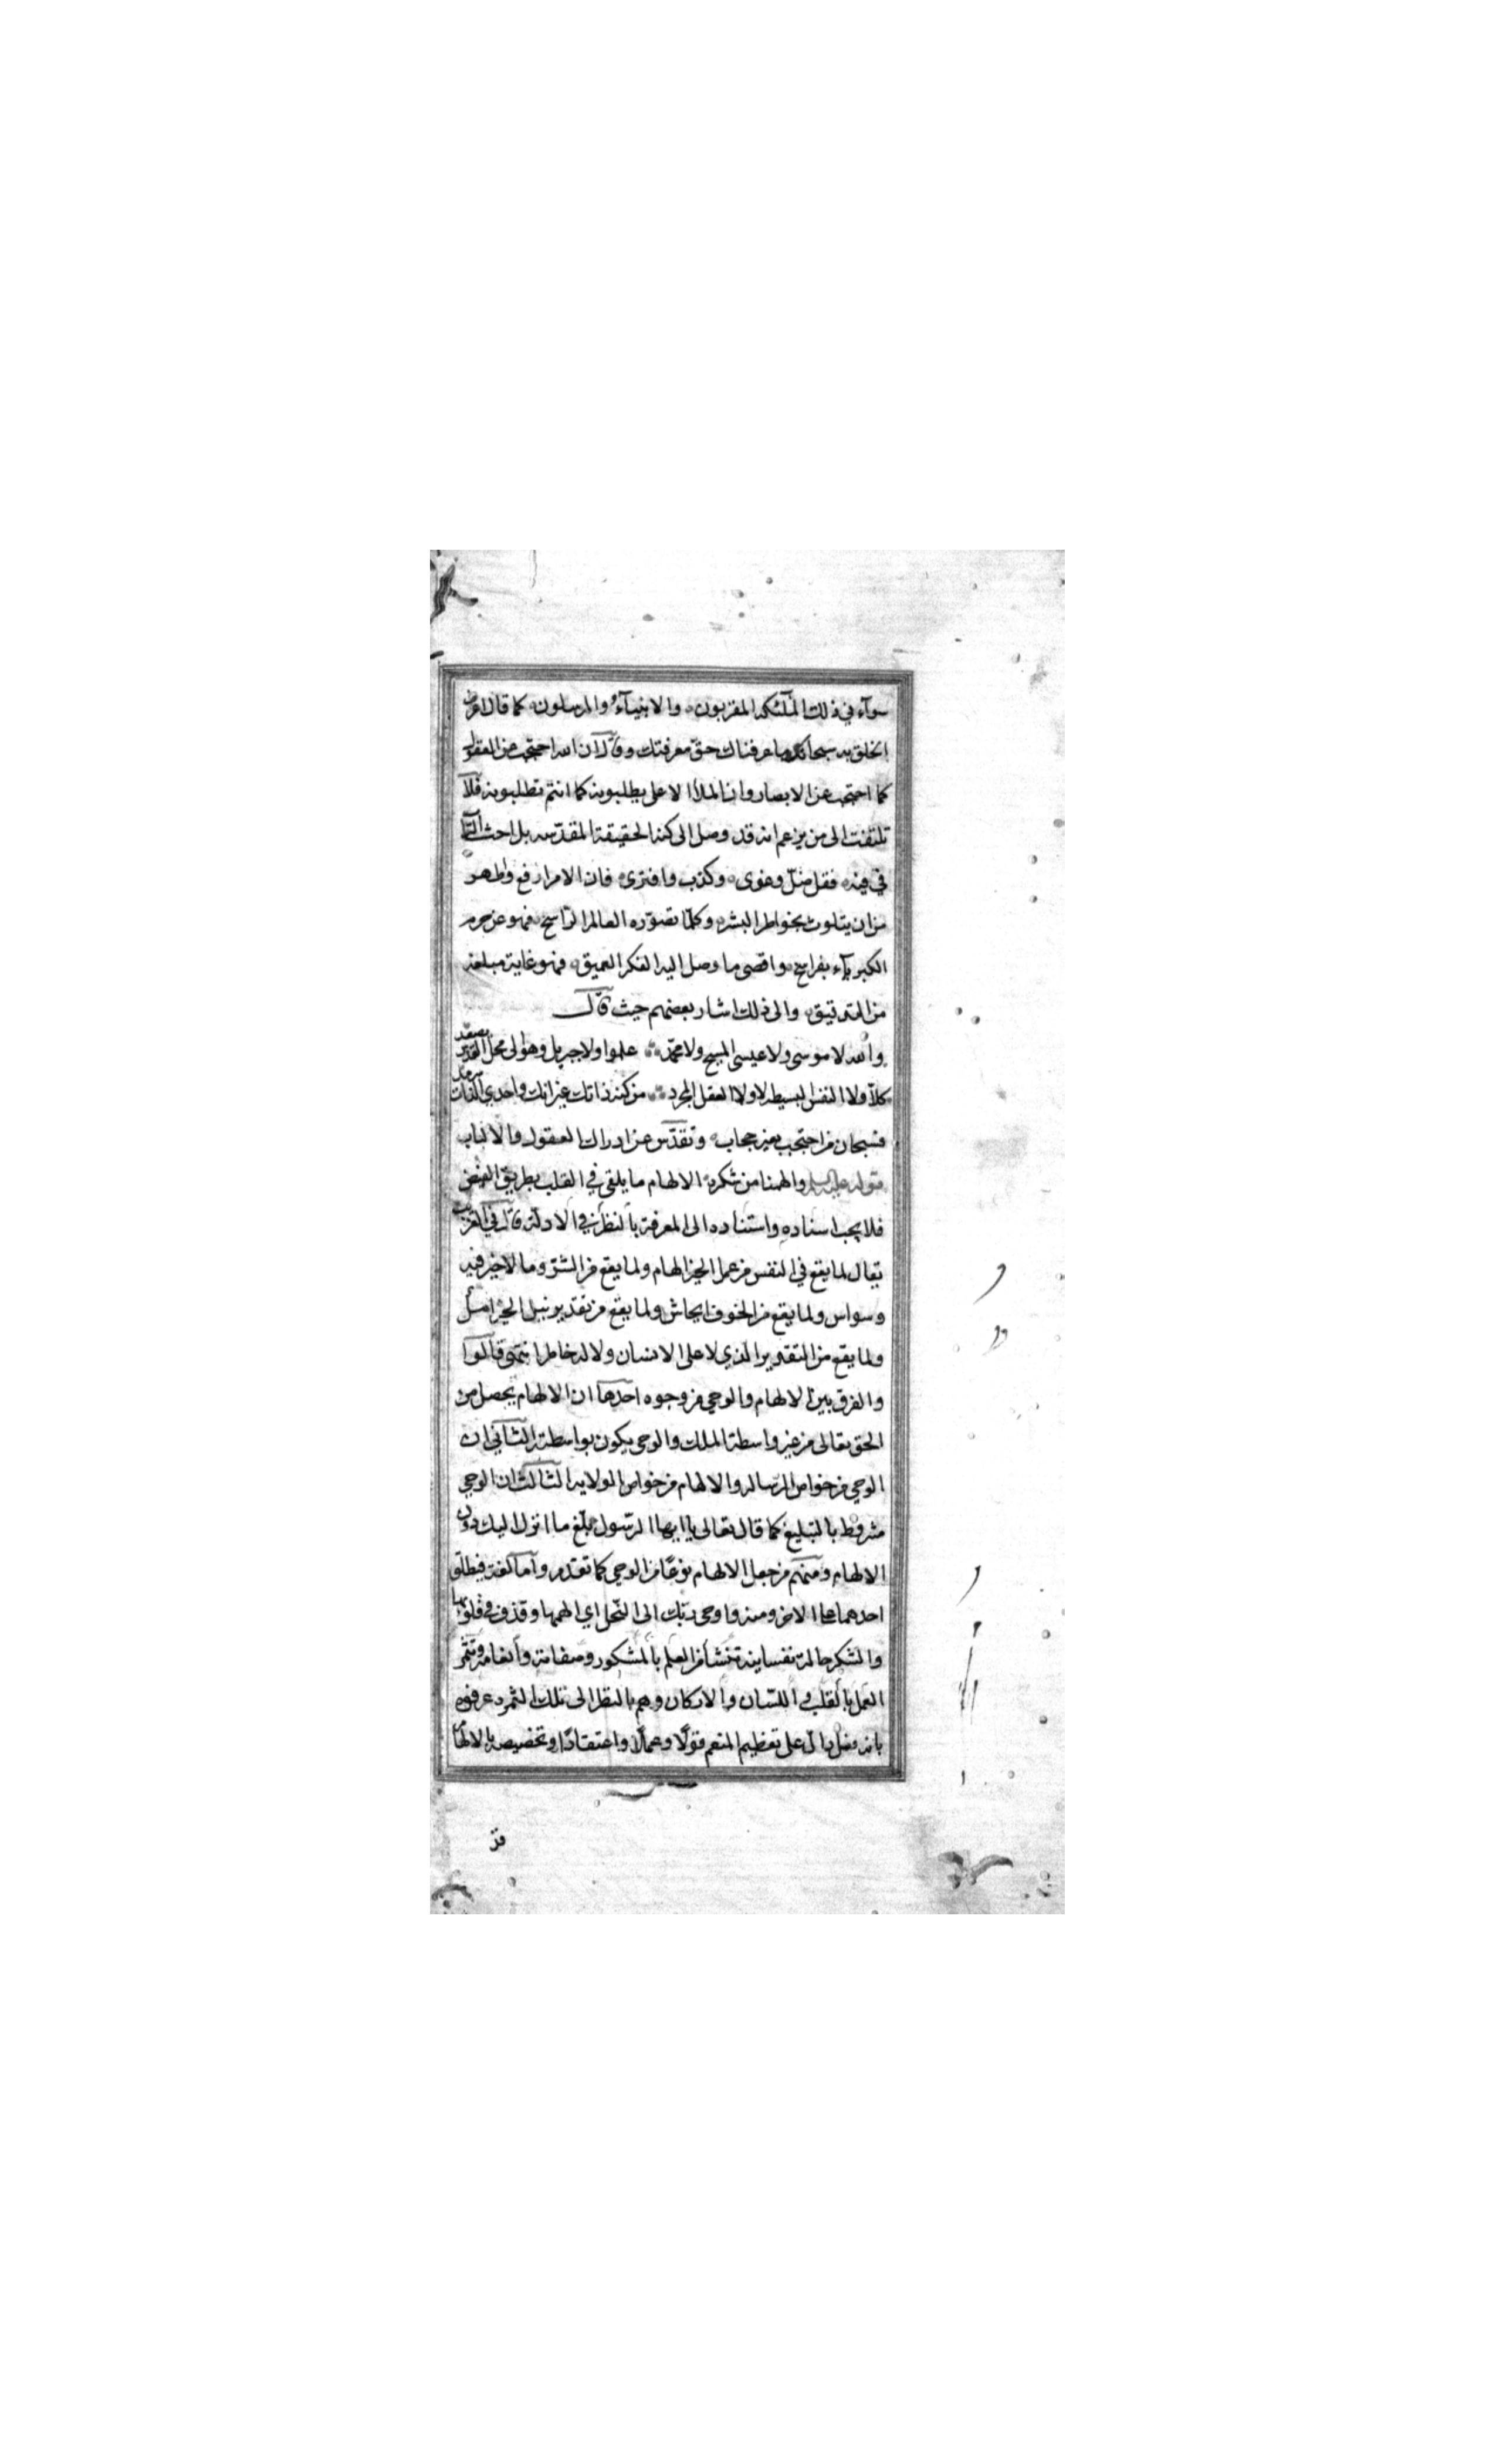 سوآء في ذلك الملئكه المقربون والانبيآء والمرسلون كما قال اعرف
الخلق به سبحانك ما عرفناك حق معرفتك وقال ان الله احتجب عن العقول
كما احتجب عن الابصار وان الملأ الاعلى يطلبونه كما انتم تطلبونه فلا
تلتفت الى من يزعم انه قد وصل الى كنه الحقيقة المقدسه بل احث التراب
في فيه فقد ضل وغوى وكذب وافترى فان الامر ارفع واطهر
من ان يتلوث بخواطر البشر وكلما تصوره العالم الراسخ فهو عن حرم
الكبريآء بفراسخ واقصى ما وصل اليه الفكر العميق فهو غاية مبلغه
من التدقيق والى ذلك اشار بعضهم حيث قال
والله لا موسى ولا عيسى المسيح ولا محمد علموا ولا جبريل وهو الى محل القدس يصعد
كلا ولا النفس البسيطه لا ولا العقل المجرد من كنه ذاتك غير انك واحدي الذات سرمد
فسبحان من احتجب بغير حجاب وتقدس عن ادراك العقول والالباب
قوله عليه السلم والهمنا من شكره الالهام ما يلقى في القلب بطريق الفيض
فلا يجب اسناده واستناده الى المعرفة بالنظر في الادلة قال في الغريب
يقال لما يقع في النفس من عمل الخير الهام ولما يقع من الشر وما لا خير فيه
وسواس ولما يقع من الخوف ايحاش ولما يقع من تقدير نيل الخير امل
ولما يقع من التقدير الذي لا على الانسان ولا له خاطر انتهى قالوا
والفرق بين الالهام والوحي من وجوه احدها ان الالهام يحصل من
الحق تعالى من غير واسطة الملك والوحي يكون بواسطته الثاني ان
الوحي من خواص الرساله والالهام من خواص الولايه الثالث ان الوحي
مشروط بالتبليغ كما قال تعالى يا ايها الرسول بلغ ما انزل اليك دون
الالهام ومنهم من جعل الالهام نوعا من الوحي كما تقدم واما لغة فيطلق
احدهما على الاخر ومنه واوحى ربك الى النحل اي الهمها وقذف في قلوبها
والشكر حالة نفسانية تنشأ من العلم بالمشكور وصفاته وانعامه وتثمر
العمل بالقلب واللسان والاركان وهم بالنظر الى تلك الثمره عرفوه
بانه فعل دال على تعظيم المنعم قولا وعملا واعتقادا وتخصيصه بالالهام